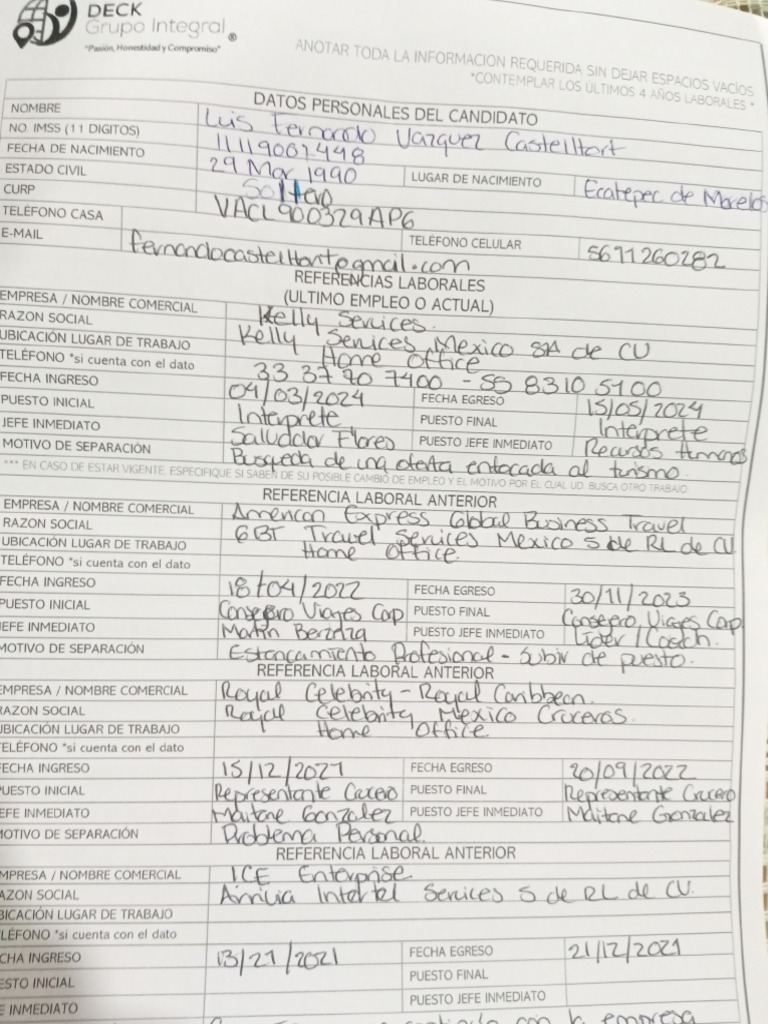 DECK
Grupo Integral ®
"Pasión, Honestidad y Compromiso"
ANOTAR TODA LA INFORMACION REQUERIDA SIN DEJAR ESPACIOS VACÍOS
*CONTEMPLAR LOS ÚLTIMOS 4 AÑOS LABORALES *
DATOS PERSONALES DEL CANDIDATO
NOMBRE Luis Fernando Vazquez Casteltort
NO. IMSS (11 DIGITOS) 11119007448
FECHA DE NACIMIENTO 29 Mar 1990 LUGAR DE NACIMIENTO Ecatepec de Morelos
ESTADO CIVIL Soltero
CURP VACL900329AP6
TELÉFONO CASA TELÉFONO CELULAR 5611260282
E-MAIL fernandocasteltort@gmail.com
REFERENCIAS LABORALES
(ULTIMO EMPLEO O ACTUAL)
EMPRESA / NOMBRE COMERCIAL Kelly Services.
RAZON SOCIAL Kelly Services Mexico SA de CV
UBICACIÓN LUGAR DE TRABAJO Home Office
TELÉFONO *si cuenta con el dato 33 3770 7400 - 55 8310 5100
FECHA INGRESO 04/03/2024 FECHA EGRESO 15/05/2024
PUESTO INICIAL Interprete PUESTO FINAL Interprete
JEFE INMEDIATO Flores PUESTO JEFE INMEDIATO Recursos Humanos
MOTIVO DE SEPARACIÓN Busqueda de una oferta enfocada al turismo.
*** EN CASO DE ESTAR VIGENTE, ESPECIFIQUE SI SABEN DE SU POSIBLE CAMBIO DE EMPLEO Y EL MOTIVO POR EL CUAL UD. BUSCA OTRO TRABAJO
REFERENCIA LABORAL ANTERIOR
EMPRESA / NOMBRE COMERCIAL American Express Global Business Travel
RAZON SOCIAL GBT Travel Services Mexico S de RL de CV
UBICACIÓN LUGAR DE TRABAJO Home Office.
TELÉFONO *si cuenta con el dato
FECHA INGRESO 18/04/2022 FECHA EGRESO 30/11/2023
PUESTO INICIAL Consejero Viajes Corp PUESTO FINAL Consejero Viajes Corp
JEFE INMEDIATO Martin PUESTO JEFE INMEDIATO Lider / Coach.
MOTIVO DE SEPARACIÓN Estancamiento Profesional - Subir de puesto.
REFERENCIA LABORAL ANTERIOR
EMPRESA / NOMBRE COMERCIAL Royal Celebrity - Royal Caribbean.
RAZON SOCIAL Royal Celebrity Mexico Cruceros.
UBICACIÓN LUGAR DE TRABAJO Home Office.
TELÉFONO *si cuenta con el dato
FECHA INGRESO 15/12/2021 FECHA EGRESO 20/09/2022
PUESTO INICIAL Representante Crucero PUESTO FINAL Representante Crucero
JEFE INMEDIATO Maitane Gonzalez PUESTO JEFE INMEDIATO Maitane Gonzalez
MOTIVO DE SEPARACIÓN Problema Personal.
REFERENCIA LABORAL ANTERIOR
EMPRESA / NOMBRE COMERCIAL ICE Enterprise
RAZON SOCIAL Intertel Services S de RL de CV.
UBICACIÓN LUGAR DE TRABAJO
TELÉFONO *si cuenta con el dato
FECHA INGRESO 13/21/2021 FECHA EGRESO 21/12/2021
PUESTO INICIAL PUESTO FINAL
JEFE INMEDIATO PUESTO JEFE INMEDIATO
con la empresa